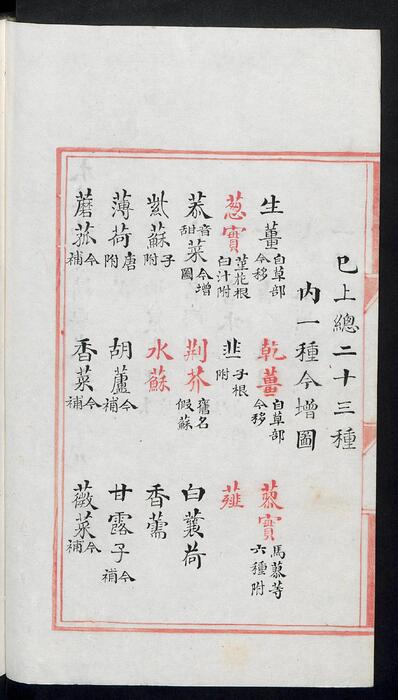 已上總二十三種
内一種今增圖
生薑自草部今移 乾薑自草部今移 蓼實馬蓼等六種附
葱實莖花根白汁附 韭子根附 薤
菾音甜菜今增圖 荆芥舊名假蘇 白蘘荷
紫蘇子附 水蘇 香薷
薄荷唐附 胡蘆今補 甘露子今補
蘑菰今補 香菜今補 薇菜今補